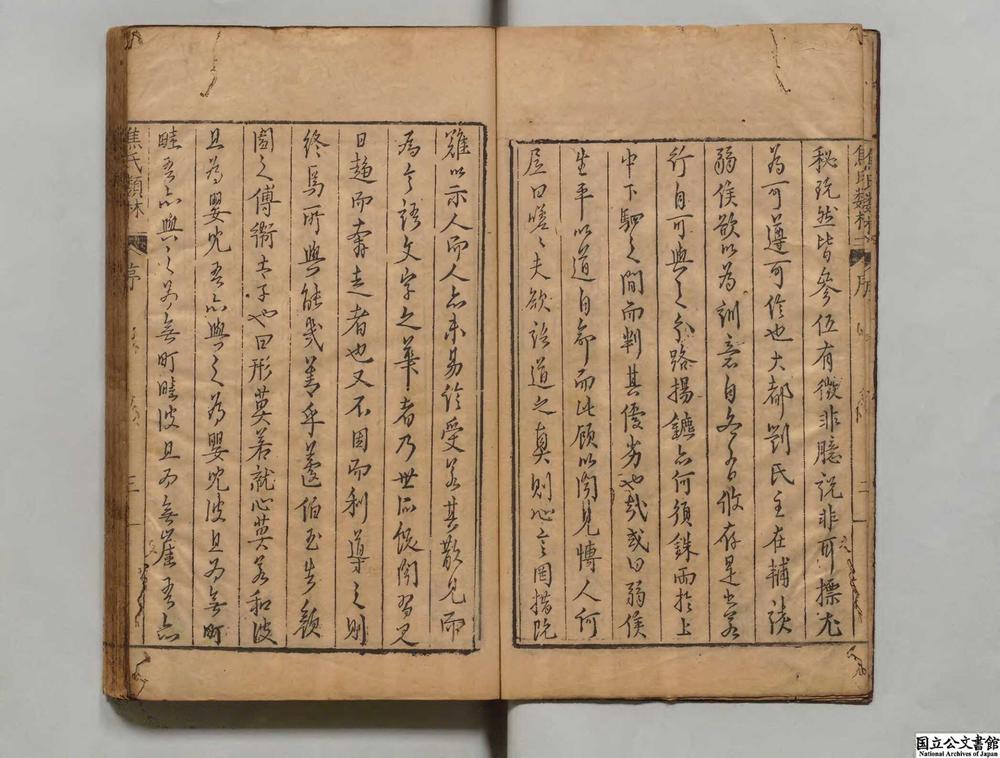 焦氏類林
序
二
秘既然皆參伍有徵非臆說非可摽尤
為可遵可信也大都劉氏主在輔談
弱侯欲以為訓意自各有攸存是書若
行自可與之分路揚鑣亦何須銖兩於上
中下駟之間而判其優劣也哉或曰弱侯
生平以道自命而此顧以聞見博人何
居曰嗟嗟夫欲語道之真則心言罔措既
難以示人而人亦未易信受若其散見而
為今語文字之華者乃世所饒聞習見
日趨而奔走者也又不因而利導之則
終焉所與能幾善乎蘧伯玉告顏
闔之傅衛太子也曰形莫若就心莫若和彼
且為嬰兒吾亦與之為嬰兒彼且為無町
畦吾亦與之為無町畦彼且為無崖吾亦
焦氏類林
序
三
国立公文書館
National Archives of Japan